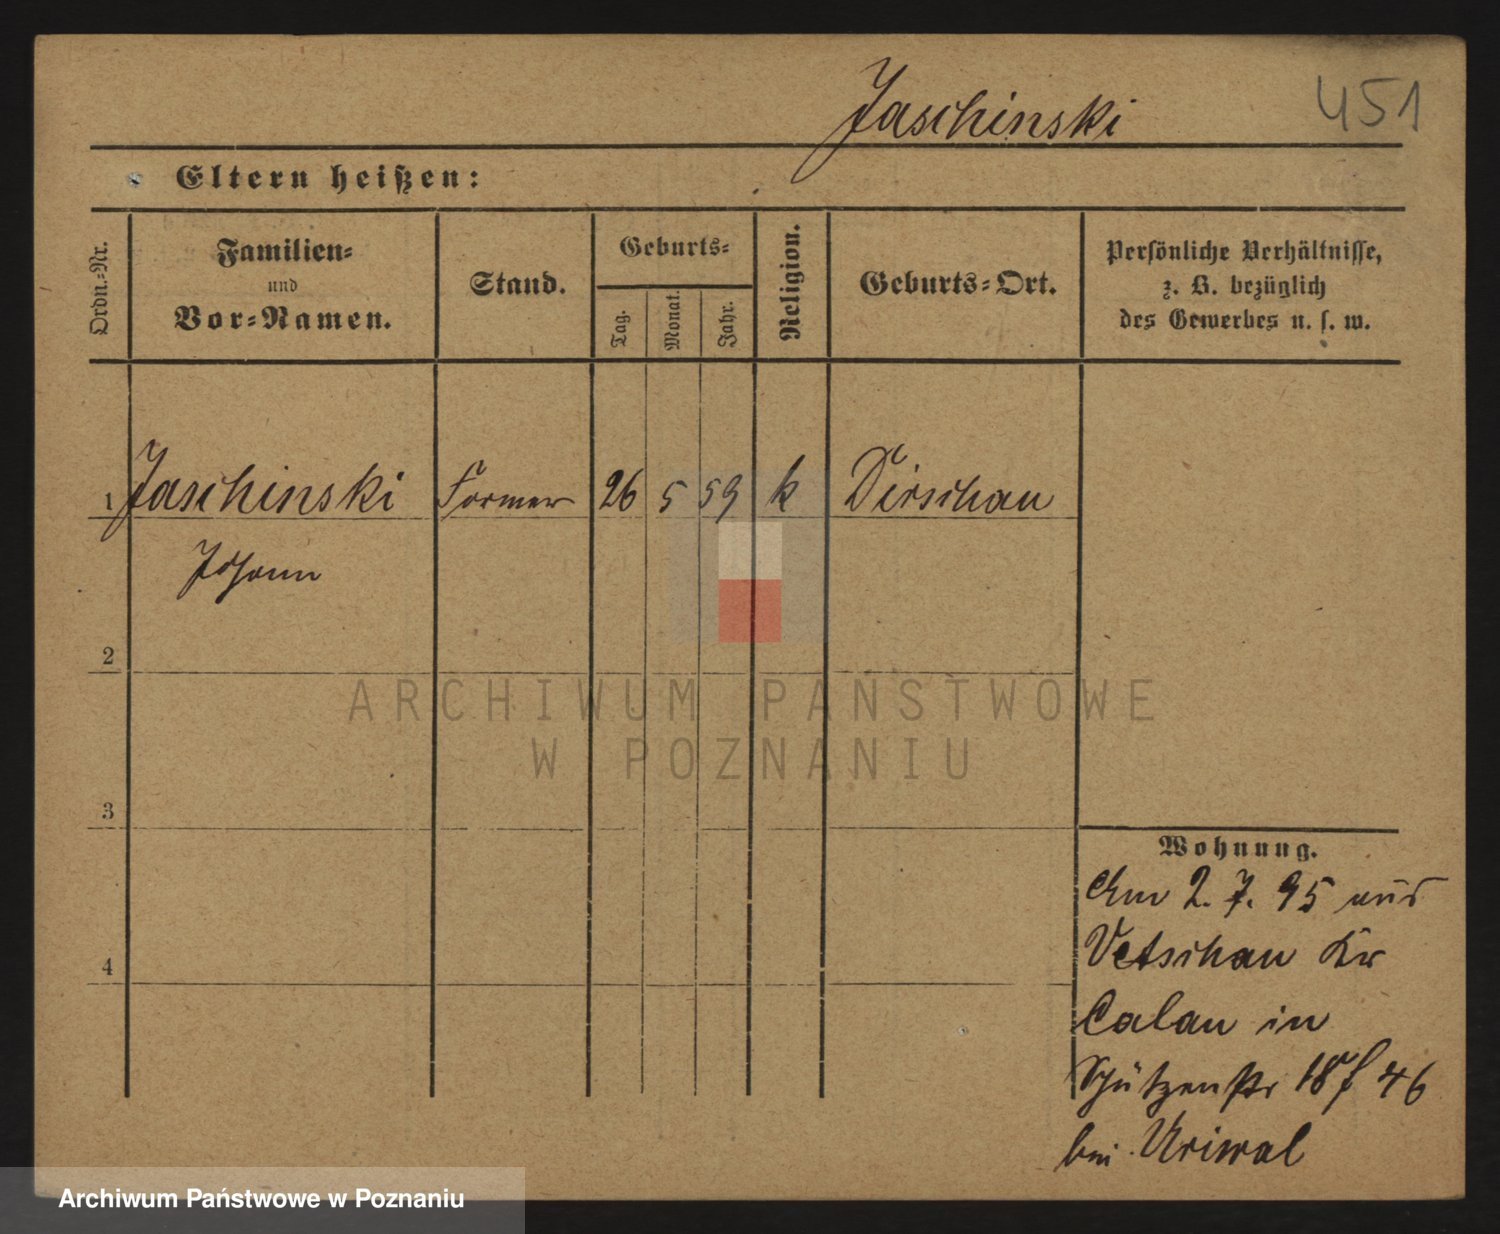 Jaschinski 451
Eltern heißen:
Ordn.-Nr.
Familien-
und
Vor-Namen.
Stand.
Geburts-
Tag.
Monat.
Jahr.
Religion.
Geburts-Ort.
Persönliche Verhältnisse,
z. B. bezüglich
des Gewerbes u. s. w.
1 Jaschinski Former 26 5 59 k Dirschau
Johann
2
3
4
Wohnung.
Am 2. 7. 95 aus
Vetschau Kr
Calau in
Schützenstr 46
bei
ARCHIWUM PAŃSTWOWE
W POZNANIU
Archiwum Państwowe w Poznaniu